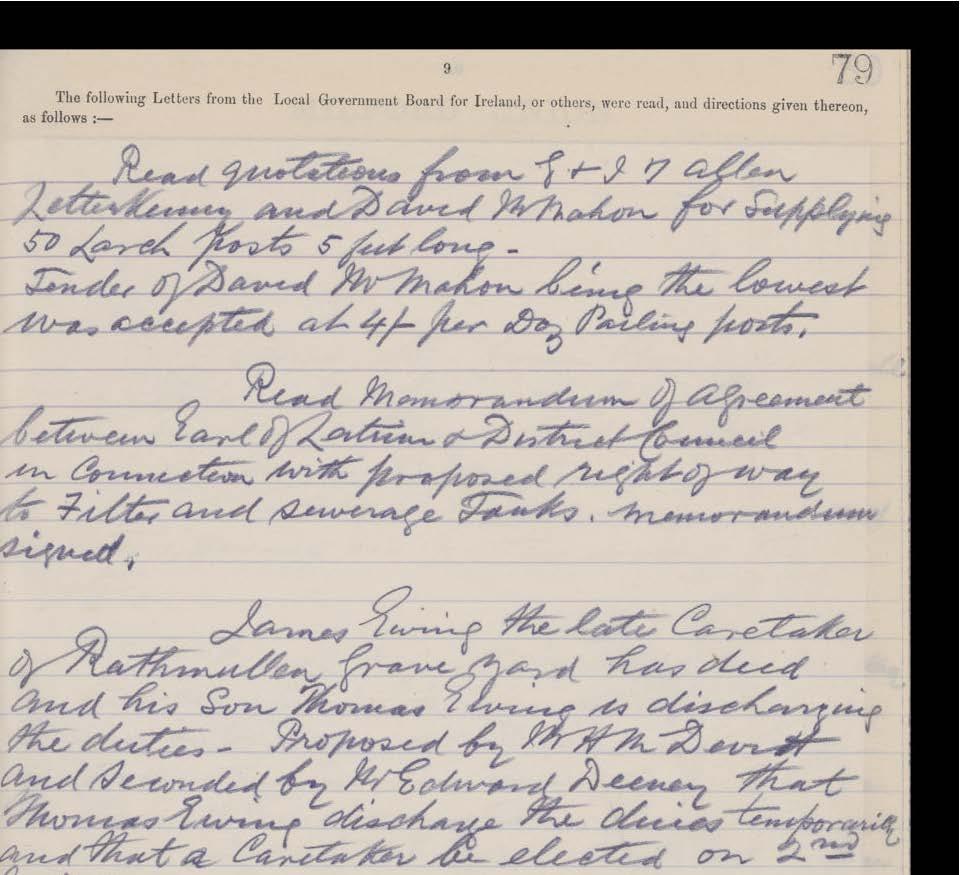 9
79
The following Letters from the Local Government Board for Ireland, or others, were read, and directions given thereon,
as follows :—
Read quotations from & I Allen
Letterkenny and David McMahon for Supplying
50 Larch Posts 5 feet long -
Tender of David McMahon being the lowest
was accepted at 4/- per Doz Pailing posts.
Read Memorandum of Agreement
between Earl of Leitrim & District Council
in Connection with proposed right of way
to Filter and sewerage Tanks. Memorandum
signed.
James Ewing the late Caretaker
of Rathmullen Grave Yard has died
and his Son Thomas Ewing is discharging
the duties - Proposed by Mr H McDevitt
and Seconded by Mr Edward Deeney that
Thomas Ewing discharge the duties temporarily
and that a Caretaker be elected on 2nd